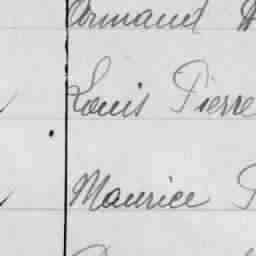 Armand
Louis Pierre
Maurice